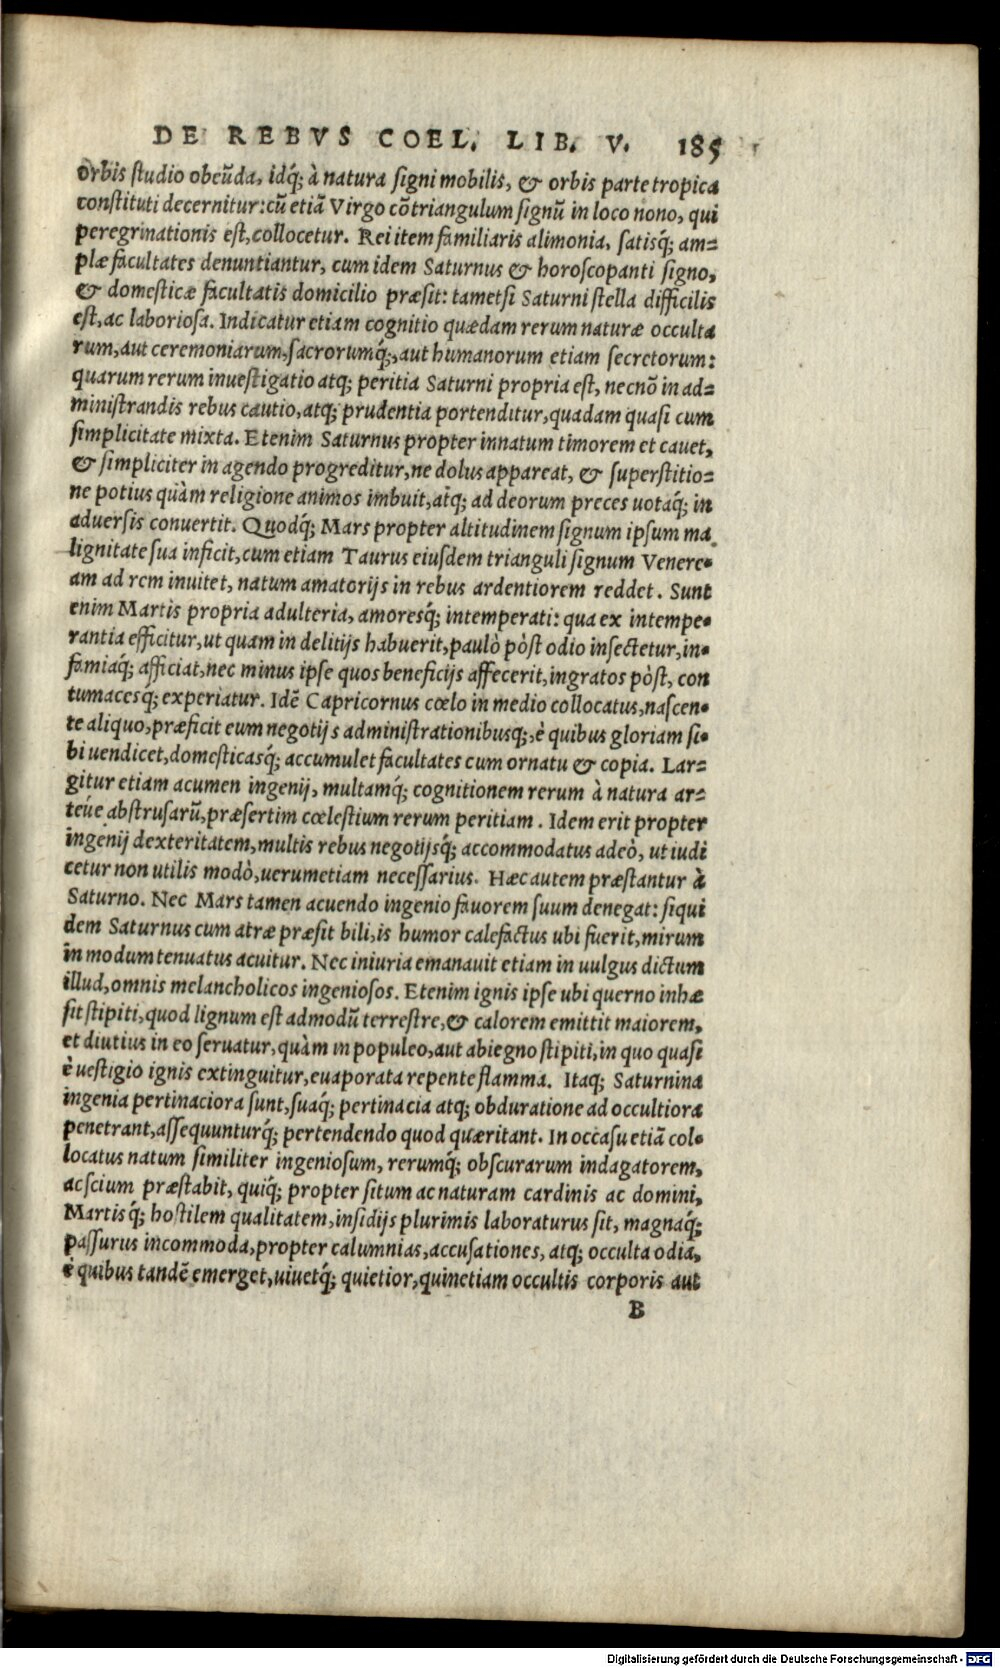 DE REBVS COEL. LIB. V. 185
orbis studio obeũda, idq́; à natura signi mobilis, & orbis parte tropica
constituti decernitur: cũ etiã Virgo cõ triangulum signũ in loco nono, qui
peregrinationis est, collocetur. Rei item familiaris alimonia, satisq́; am=
plæ facultates denuntiantur, cum idem Saturnus & horoscopanti signo,
& domesticæ facultatis domicilio præsit: tametsi Saturni stella difficilis
est, ac laboriosa. Indicatur etiam cognitio quædam rerum naturæ occulta
rum, aut ceremoniarum, sacrorumq́;, aut humanorum etiam secretorum:
quarum rerum inuestigatio atq; peritia Saturni propria est, necnõ in ad=
ministrandis rebus cautio, atq; prudentia portenditur, quadam quasi cum
simplicitate mixta. Etenim Saturnus propter innatum timorem et cauet,
& simpliciter in agendo progreditur, ne dolus appareat, & superstitio=
ne potius quàm religione animos imbuit, atq; ad deorum preces uotaq́; in
aduersis conuertit. Quodq́; Mars propter altitudinem signum ipsum ma
lignitate sua inficit, cum etiam Taurus eiusdem trianguli signum Venere=
am ad rem inuitet, natum amatorijs in rebus ardentiorem reddet. Sunt
enim Martis propria adulteria, amoresq́; intemperati: qua ex intempe=
rantia efficitur, ut quam in delitijs habuerit, paulò pòst odio insectetur, in=
famiaq́; afficiat, nec minus ipse quos beneficijs affecerit, ingratos pòst, con
tumacesq́; experiatur. Idẽ Capricornus cœlo in medio collocatus, nascen=
te aliquo, præficit eum negotijs administrationibusq;, è quibus gloriam si=
bi uendicet, domesticasq́; accumulet facultates cum ornatu & copia. Lar=
gitur etiam acumen ingenij, multamq́; cognitionem rerum à natura ar=
téue abstrusarũ, præsertim cœlestium rerum peritiam. Idem erit propter
ingenij dexteritatem, multis rebus negotijsq́; accommodatus adeò, ut iudi
cetur non utilis modò, uerumetiam necessarius. Hæc autem præstantur à
Saturno. Nec Mars tamen acuendo ingenio fauorem suum denegat: siqui
dem Saturnus cum atræ præsit bili, is humor calefactus ubi fuerit, mirum
in modum tenuatus acuitur. Nec iniuria emanauit etiam in uulgus dictum
illud, omnis melancholicos ingeniosos. Etenim ignis ipse ubi querno inhæ
sit stipiti, quod lignum est admodũ terrestre, & calorem emittit maiorem,
et diutius in eo seruatur, quàm in populeo, aut abiegno stipiti, in quo quasi
è uestigio ignis extinguitur, euaporata repente flamma. Itaq; Saturnina
ingenia pertinaciora sunt, suaq́; pertinacia atq; obduratione ad occultiora
penetrant, assequunturq́; pertendendo quod quæritant. In occasu etiã col=
locatus natum similiter ingeniosum, rerumq́; obscurarum indagatorem,
ac scium præstabit, quiq́; propter situm ac naturam cardinis ac domini,
Martisq́; hostilem qualitatem, insidijs plurimis laboraturus sit, magnaq́;
passurus incommoda, propter calumnias, accusationes, atq; occulta odia,
è quibus tandẽ emerget, uiuetq́; quietior, quinetiam occultis corporis aut
B
Digitalisierung gefördert durch die Deutsche Forschungsgemeinschaft - DFG